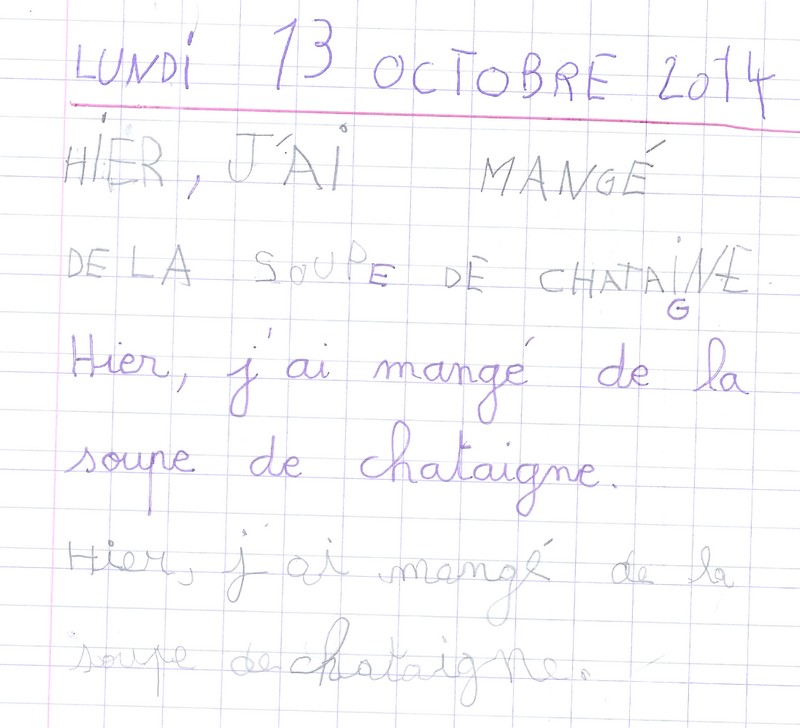 LUNDI 13 OCTOBRE 2014
HIER, J'AI MANGÉ
DE LA SOUPE DE CHATAINE
G
Hier, j'ai mangé de la
soupe de chataigne.
Hier, j'ai mangé de la
soupe de chataigne.